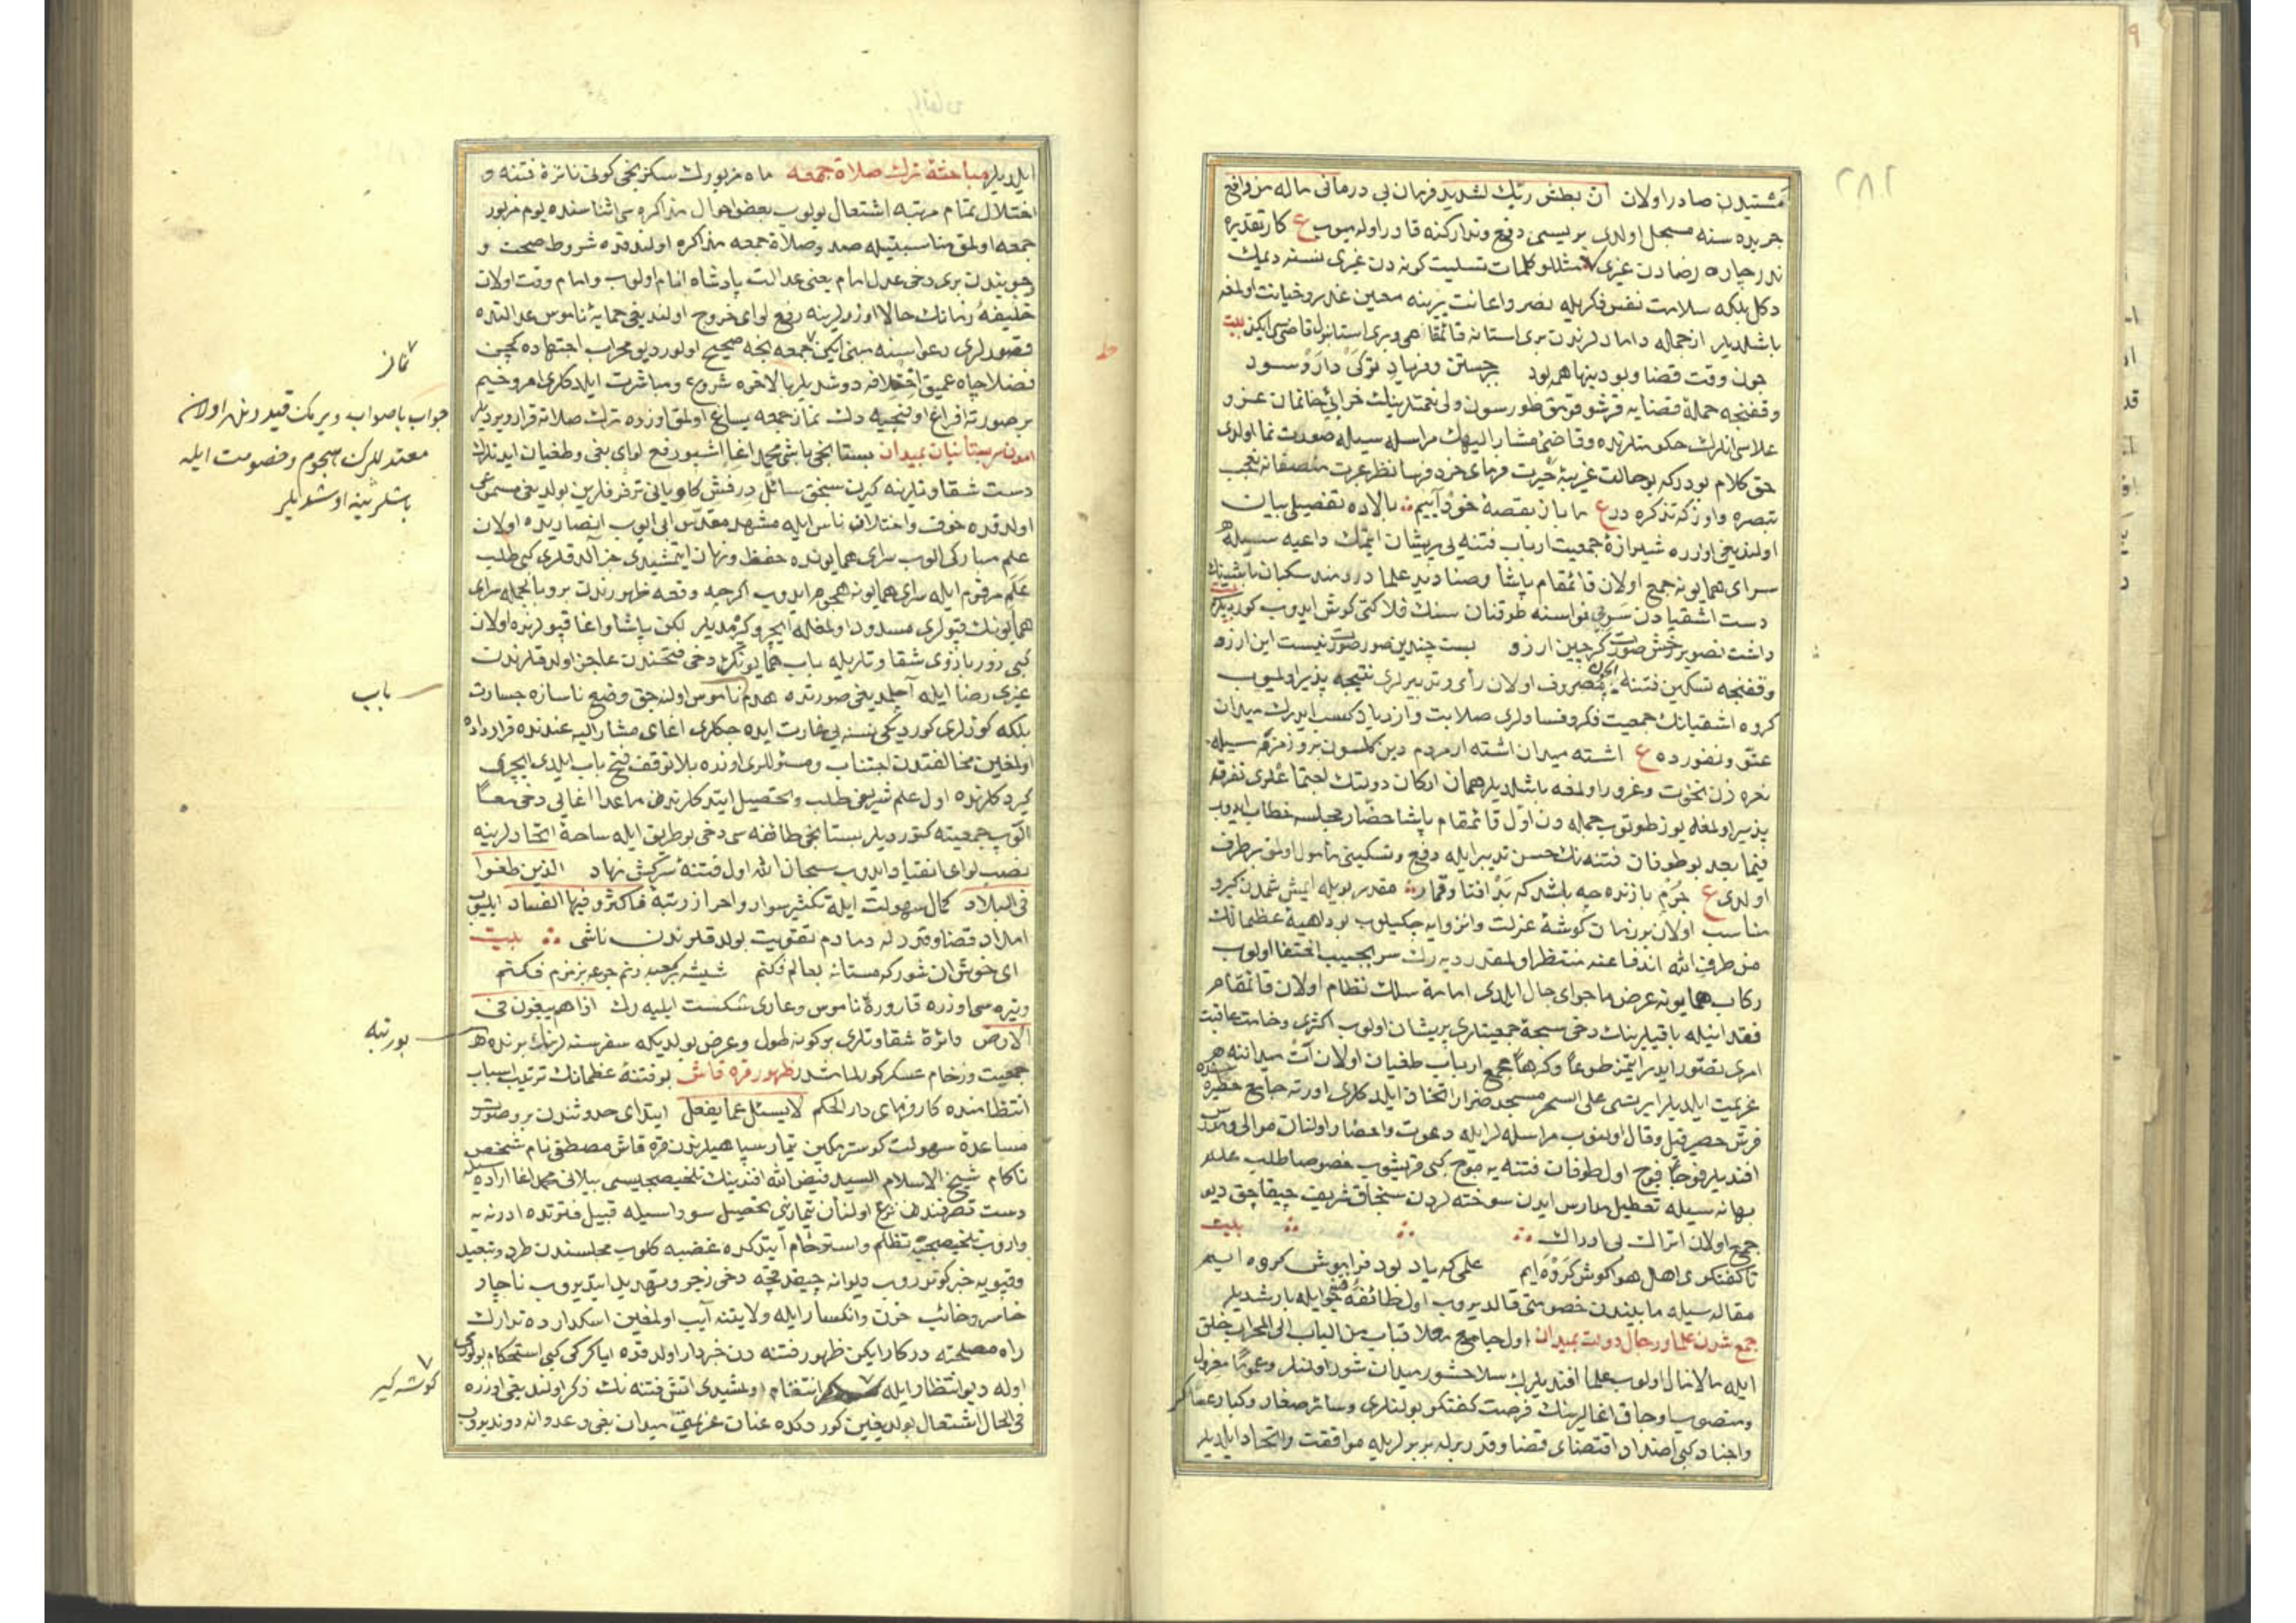 ٢٨٢
مشتیدن صادر اولان ان بطش ربك لشدید فرمان بی درمانی ماله من واقع
جریده سنه مسجل اولدی بریسی دفع و تدارکنه قادر اوله میوب ع کار تقدیره
ندر چاره رضادن غیری مثللو کلمات تسلیت کونه دن غیری نسنه دیمك
دکل بلکه سلامت نفس فکریله نصر و اعانت یرینه معین غدر و خیانت اولمغه
باشلدیلر ازجمله دامادلرندن بری استانه قائمقامی و بری استانبول قاضیسی ایکن بیت
چون وقت قضا و بودنیها همه بود
وقفنجه حمله قضایه قرشو قومق طورسون ولی نعمتدینك خرابی خانمان عز و
علاسی انلرك حکومتلرنده و قاضئ مشار الیهك مراسله سیله صورت نما اولدی
حق کلام بودرکه بو حالت غریبۀ حیرت فرمای خرد فرسا نظر عبرت منصفانه
تبصره و اوزکه تذکره در ع ما باز بقصۀ خود آییم بالاده تفصیلی بیان
اولندیغی اوزره شیرازۀ جمعیت ارباب فتنه یی پریشان ایتمك داعیه سیله
سرای همایونه جمع اولان قائمقام پاشا و صنادید علما دردمند سکبان باشینك
دست اشقیادن سوی نواسنه طوقنان سنك فلاکتی کوش ایدوب کوردیلر بیت
داشت تصویر خوش صورت کرچین ارزو بست چندین صورت صورت نیست این ارزو
وقفنجه تسکین فتنه یه مصروف اولان رأی و تدبیرلری نتیجه پذیر اولمیوب
کروه اشقیانك جمعیت فکر و فسادلری صلابت و ازدیاد کسب ایدرك میدان
عتو و نفورده ع اشته میدان اشته ار مردم دین کلسون بروز مزمه سیله
نعره زن نخوت و غرور اولمغه باشلدیلر همان ارکان دولتك اجتماعلری تفرقه
پذیر اولمغله یوز طوتوب جمله دن اول قائمقام پاشا حضار مجلسه خطاب ایدوب
فیما بعد بو طوفان فتنه نك حسن تدبیر ایله دفع و تسکینی مأمول اولمق برطرف
اولدی ع جرم بازنده چه باشد که بد افتاد قمار مقدر بویله ایمش شمدن کیرو
مناسب اولان بر زمان کوشۀ عزلت و انزوایه چکیلوب بو داهیۀ عظمانك
من طرف الله اندفاعنه منتظر اولمقدر دیه رك سر بجیب اختفا اولوب
رکاب همایونه عرض ماجرای حال ایلدی امامۀ سلك نظام اولان قائمقام
فقد اینله باقیلرینك دخی سبحۀ جمعیتلری پریشان اولوب اکثری وخامت عاقبت
امری تصور ایدر ایتمز طوعا و کرها مجمع ارباب طغیان اولان آت میداننه
عزیمت ایلدیلر ایرتسی علی السحر مسجد ضرار اتخاذ ایلدکلری اورته جامع
فرش حصیر قیل و قال اولنوب مراسله لر ایله دعوت و احضار اولنان موالی و
افندیلر فوجا فوج اول طوفان فتنه یه موج کبی قریشوب خصوصا طلب علم
بهانه سیله تعطیل مدارس ایدن سوخته لردن سنجاق شریف چیقاجق دیو
جمع اولان اتراك بی ادراك بیت
تاکفتکوی اهل هوا کوش کرده ایم علمی که یاد بود فراموش کرده ایم
مقاله سیله مابیندن خصومتی قالدیروب اول طائفۀ ایله بارشدیلر
جمع شدن علما و رجال دولت بمیدان اول جامع معلا قباب من الباب الی المحراب خلق
ایله مالامال اولوب علما افندیلرك سلاحشور میدان شور اولنلر و عموما معزول
و منصوب اوجاق اغالرینك فرصت کفتکو بولنلری و سائر صغار و کبار عساکر
و اجناد کبی اضداد اقتضای قضا و قدر ایله بربرلریله موافقت و اتحاد ایلدیلر
ایلدیلر مباحثۀ ترك صلاة جمعه ماه مزبورك سکزنجی کونی نائرۀ فتنه و
اختلال تمام مرتبه اشتعال بولوب بعض احوال مذاکره سی اثناسنده یوم مزبور
جمعه اولمق مناسبتیله صدد صلاة جمعه مذاکره اولندقده شروط صحت و
وجوبندن بری دخی عدل امام یعنی عدالت پادشاه انام اولوب و امام وقت اولان
خلیفۀ زمانك حالا اوزرلرینه رفع لوای خروج اولندیغی حمایۀ ناموس عدالتده
قصورلری دعواسنه مبنی ایکن جمعه نجه صحیح اولور دیو محراب اجتهاده کچن
فضلا چاه عمیق اختلافه دوشدیلر بالاخره شروع و مباشرت ایلدکلری امر وخیم
بر صورته افراغ اولنجیه دك نماز جمعه یساغ اولمق اوزره ترك صلاته قرار ویردیلر
امدن بستانیان بمیدان بستانجی باشی محمد اغا اشبو رفع لوای بغی و طغیان ایدنلرك
دست شقاوتلرینه کیرن سنجق سائل درفش کاویانی ترفرفلرین بولدیغی مسموعی
اولدقده خوف و اختلاف ناس ایله مشهد مقدس ابی ایوب انصاریده اولان
علم مبارکی الوب سرای همایونده حفظ و نهان ایتمشیدی خبر آلدقلری کبی طلب
علم مرقوم ایله سرای همایونه هجوم ایدوب اکرچه وقعه ظهورندن برو بالجمله سرای
همایونك قپولری مسدود اولمغله ایچرو کیرمدیلر لکن پاشا و اغا قپولرنده اولان
کبی زور بازوی شقاوتلریله باب همایونك دخی فتحندن عاجز اولدقلرندن
غیری رضا ایله آچلمدیغی صورتده هدم ناموس اولنه جق وضع ناسازه جسارت
بلکه کوزلری کوردیکی نسنه یی غارت ایده جکلری اغای مشار الیه عندنده قرارداده
اولمغین مخالفتدن اجتناب و مسئوللری اوزره بلا توقف فتح باب ایلدی ایچری
کیردکلرنده اول علم شریفی طلب و تحصیل ایتدکلرندن ماعدا اغایی دخی معا
الوب جمعیته کتوردیلر بستانجی طائفه سی دخی بو طریق ایله ساحۀ اتحادلرینه
نصب لوای انقیاد ایدوب سبحان الله اول فتنۀ سرکش نهاد الذین طغوا
فی البلاد کمال سهولت ایله تکثیر سواد و احراز رتبۀ فاکثروا فیها الفساد ایلیوب
امداد قضا و قدر له دمادم تقویت بولدقلرندن ناشی بیت
ای خوش ان شور که مستانه بعالم فکنم شیشه بر جبه زنم جرعه بزمزم فکنم
وتیره سی اوزره قارورۀ ناموس و عاری شکست ایلیه رك اذا هم یبغون فی
الارض دائرۀ شقاوتلری بو کونه طول و عرض بولدیکه سفر سنه لرینك برنده
جمعیت و زحام عسکر کورلمامشدر ظهور قره قاش بو فتنۀ عظمانك ترتیب اسباب
انتظامنده کارفرمای دار الحکم لا یسئل عما یفعل ابتدای حدوثندن بر وصوب
مساعدۀ سهولت کوسترمکین تیمار سپاهیلرندن قره قاش مصطفی نام شخص
ناکام شیخ الاسلام السید فیض الله افندینك تلخیصجیسی بیلانی محمد اغا اراده سیله
دست تصرفندن نزع اولنان تیمارین تحصیل سوداسیله قبیل فترتده ادرنه یه
واروب تلخیصجیه تظلم و استرحام ایتدکده غضبه کلوب مجلسندن طرد و تبعید
و قپویه خبر کوندروب دیوانه چیقدقچه دخی زجر و تهدید ایتدیروب ناچار
خاسر و خائب حزن و انکسار ایله ولایتنه آیب اولمغین اسکدارده تدارك
راه مصلحته درکار ایکن ظهور فتنه دن خبردار اولدقده
اوله دیو انتظار ایله انتقام اولمشیدی اتش فتنه نك ذکر اولندیغی اوزره
فی الحال اشتعال بولدیغین کوردکده عنان عزیمتی میدان بغی و عدوانه دوندیروب
نماز
جواب باصواب ویرمك قیدرنده اولان
معتدللرك هجوم و خصومت ایله
باشلرینه اوشدیلر
باب
بو رتبه
کوشه کیر